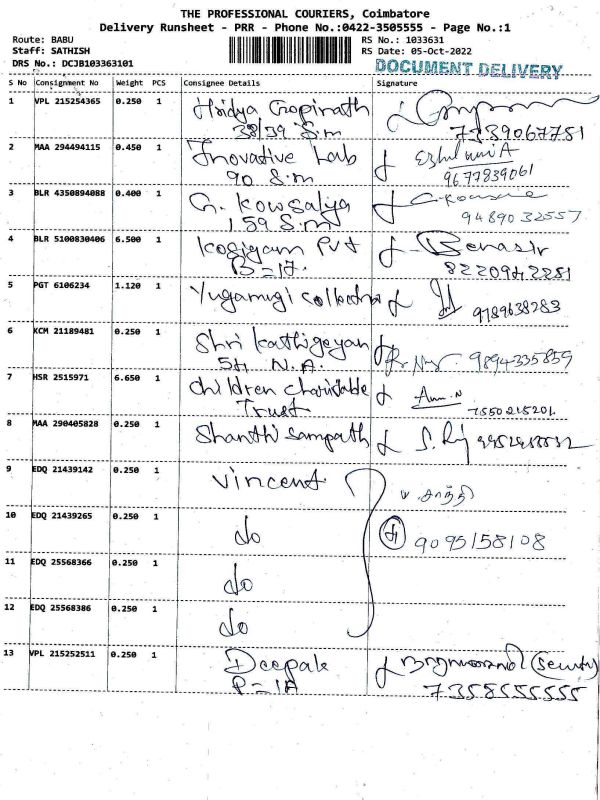 THE PROFESSIONAL COURIERS, Coimbatore
Delivery Runsheet - PRR - Phone No.:0422-3505555 - Page No.:1
Route: BABU RS No.: 1033631
Staff: SATHISH RS Date: 05-Oct-2022
DRS No.: DCJB103363101 DOCUMENT DELIVERY
S No Consignment No Weight PCS Consignee Details Signature
1 VPL 215254365 0.250 1 Hridya Gopinath
38/39 S.m 7339067781
2 MAA 294494115 0.450 1 Inovative Lab Ezhil
90 S.m 9677839061
3 BLR 4350894088 0.400 1 G. Kowsalya
159 S.m 9489032557
4 BLR 5100830406 6.500 1 Kosigam Pvt
B=17. 8220942281
5 PGT 6106234 1.120 1 Yugamugi 9789638283
6 KCM 21189481 0.250 1 Shri Kathigeyan
54 N.A. 9894335859
7 HSR 2515971 6.650 1 Children Charitable
Trust 7550215201.
8 MAA 290405828 0.250 1 Shanthi Sampath
9 EDQ 21439142 0.250 1 Vincent
10 EDQ 21439265 0.250 1 do 9095158108
11 EDQ 25568366 0.250 1 do
12 EDQ 25568386 0.250 1 do
13 VPL 215252511 0.250 1 Deepak
P=1A 7358555555